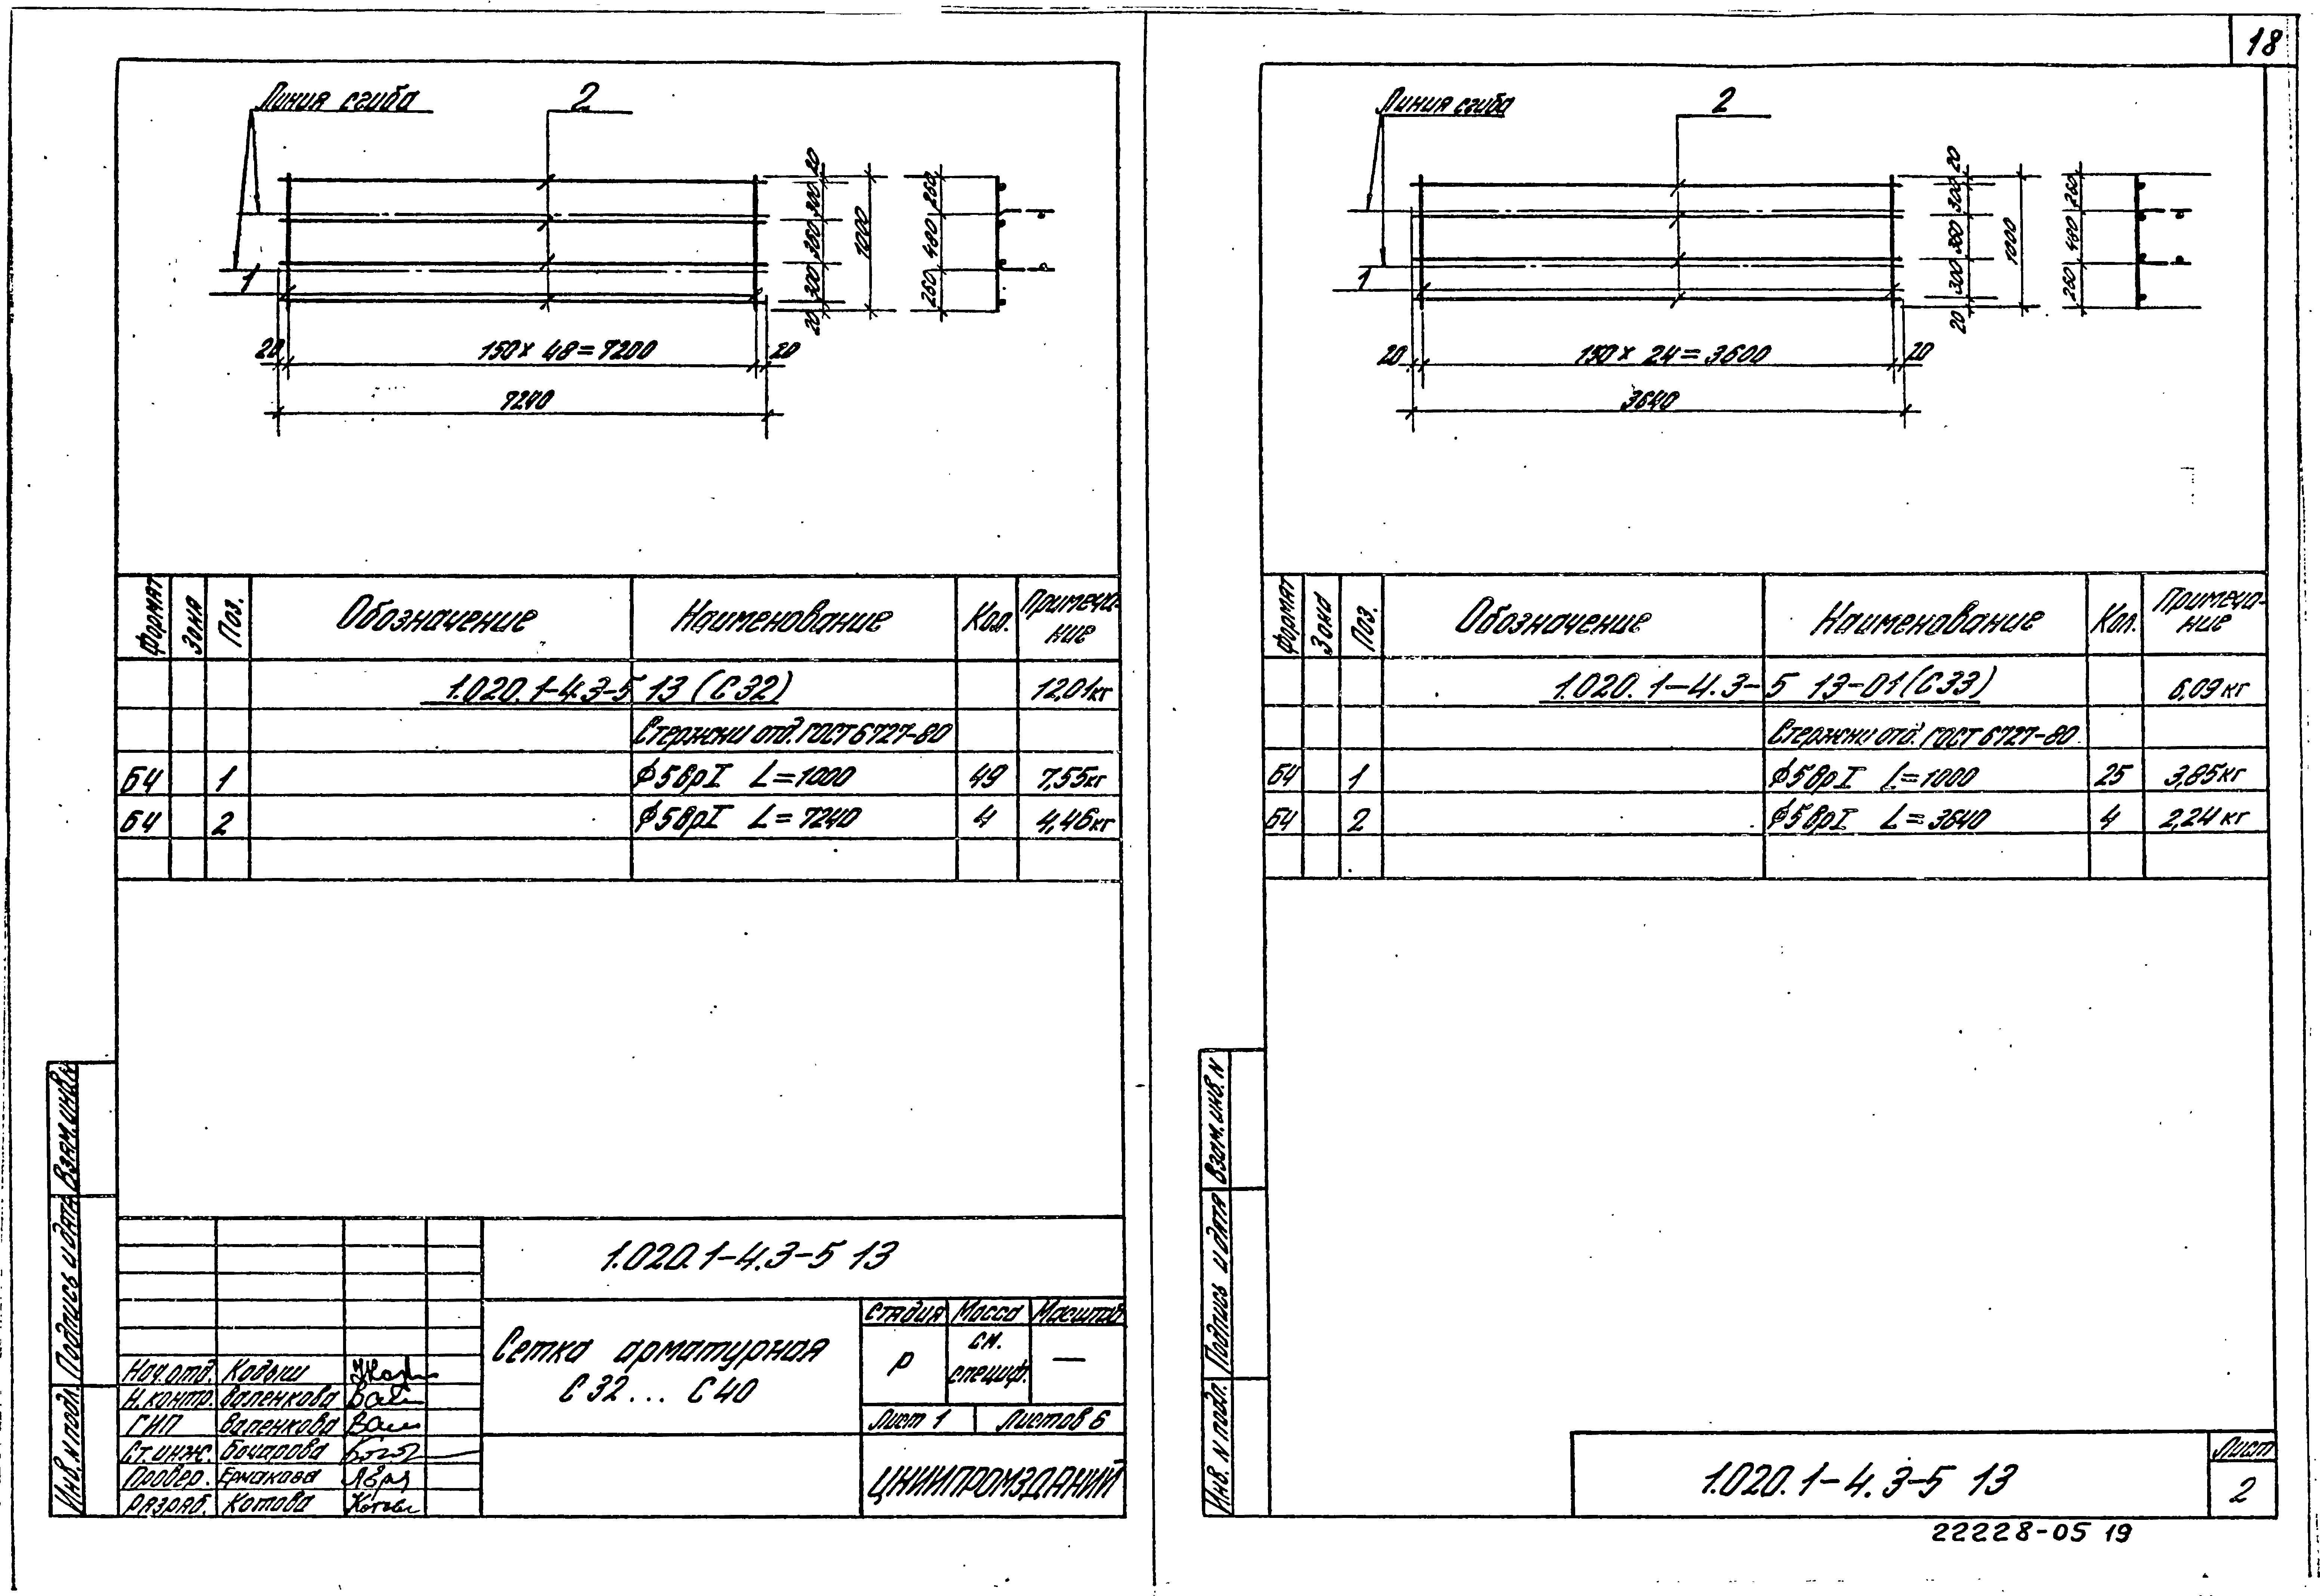 18
Линия сгиба
2
1
20
300
360
300
20
1000
260
480
260
20
150 х 48 = 7200
20
7240
Формат Зона Поз. Обозначение Наименование Кол. Примеча-
ние
1.020.1-4.3-5 13 (С32) 12,01кг
Стержни отд. ГОСТ 6727-80
БЧ 1 ϕ5ВрI L=1000 49 7,55кг
БЧ 2 ϕ5ВрI L=7240 4 4,46кг
Взам.инв.N
Подпись и дата
Инв. N подл.
1.020.1-4.3-5 13
Сетка арматурная
С 32... С 40
Стадия Масса Масштаб
Р см. —
специф.
Лист 1 Листов 6
ЦНИИПРОМЗДАНИЙ
Нач.отд. Кодыш
Н.контр. Валенкова
ГИП Валенкова
Ст.инж. Бочарова
Провер. Ермакова
Разраб. Котова
Линия сгиба
2
1
20
300
360
300
20
1000
260
480
260
20
150 х 24 = 3600
20
3640
Формат Зона Поз. Обозначение Наименование Кол. Примеча-
ние
1.020.1-4.3-5 13-01(С33) 6,09 кг
Стержни отд. ГОСТ 6727-80
БЧ 1 ϕ5ВрI L=1000 25 3,85кг
БЧ 2 ϕ5ВрI L=3640 4 2,24 кг
Взам.инв.N
Подпись и дата
Инв. N подл.
1.020.1-4.3-5 13
Лист
2
22228-05 19